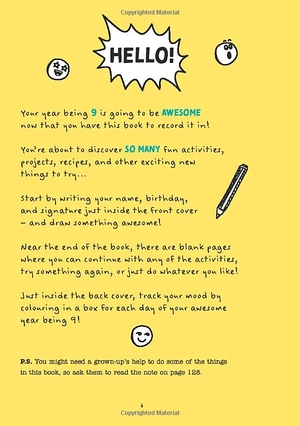 Copyrighted Material
HELLO!
Your year being 9 is going to be AWESOME
now that you have this book to record it in!
You're about to discover SO MANY fun activities,
projects, recipes, and other exciting new
things to try...
Start by writing your name, birthday,
and signature just inside the front cover
– and draw something awesome!
Near the end of the book, there are blank pages
where you can continue with any of the activities,
try something again, or just do whatever you like!
Just inside the back cover, track your mood by
colouring in a box for each day of your awesome
year being 9!
P.S. You might need a grown-up's help to do some of the things
in this book, so ask them to read the note on page 128.
Copyrighted Material